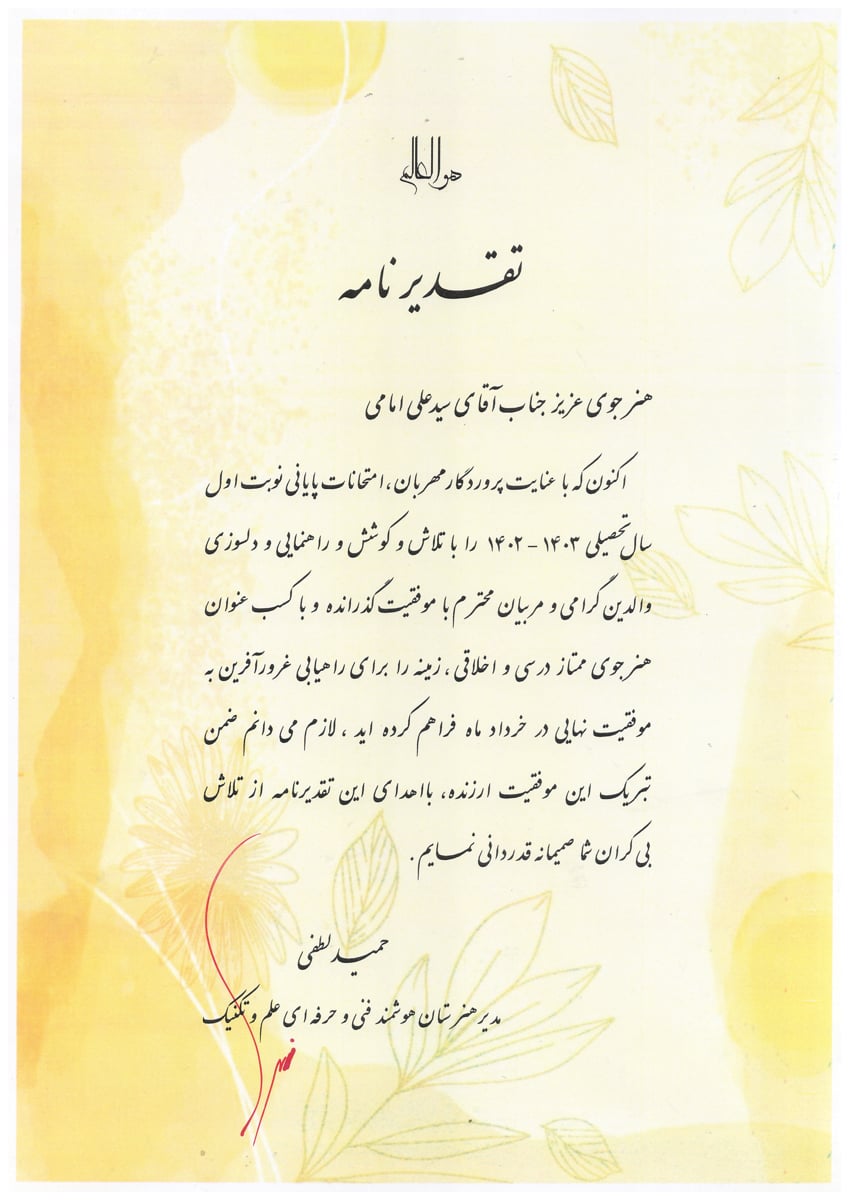 هو العالم
تقدیر نامه
هنرجوی عزیز جناب آقای سید علی امامی
اکنون که با عنایت پروردگار مهربان، امتحانات پایانی نوبت اول
سال تحصیلی ۱۴۰۳ - ۱۴۰۲ را با تلاش و کوشش و راهنمایی و دلسوزی
والدین گرامی و مربیان محترم با موفقیت گذرانده و با کسب عنوان
هنرجوی ممتاز درسی و اخلاقی، زمینه را برای راهیابی غرورآفرین به
موفقیت نهایی در خرداد ماه فراهم کرده اید، لازم می دانم ضمن
تبریک این موفقیت ارزنده، بااهدای این تقدیرنامه از تلاش
بی کران شما صمیمانه قدردانی نمایم.
حمید لطفی
مدیر هنرستان هوشمند فنی و حرفه ای علم و تکنیک